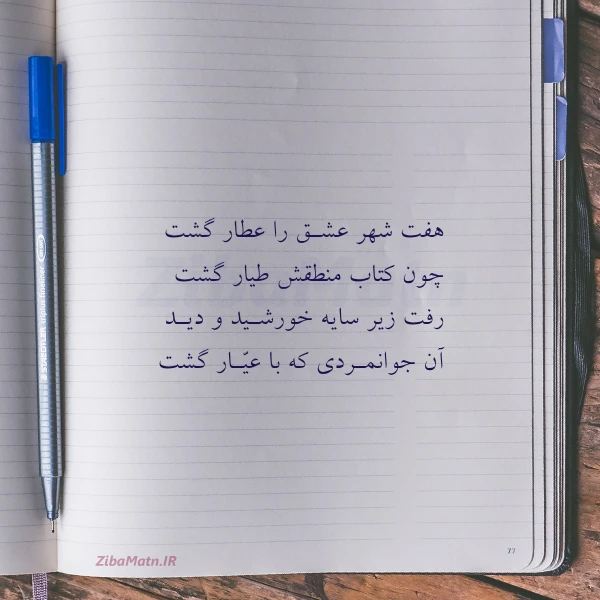 هفت شهر عشق را عطار گشت
چون کتاب منطقش طیار گشت
رفت زیر سایه خورشید و دید
آن جوانمردی که با عیّار گشت
ZibaMatn.IR
77